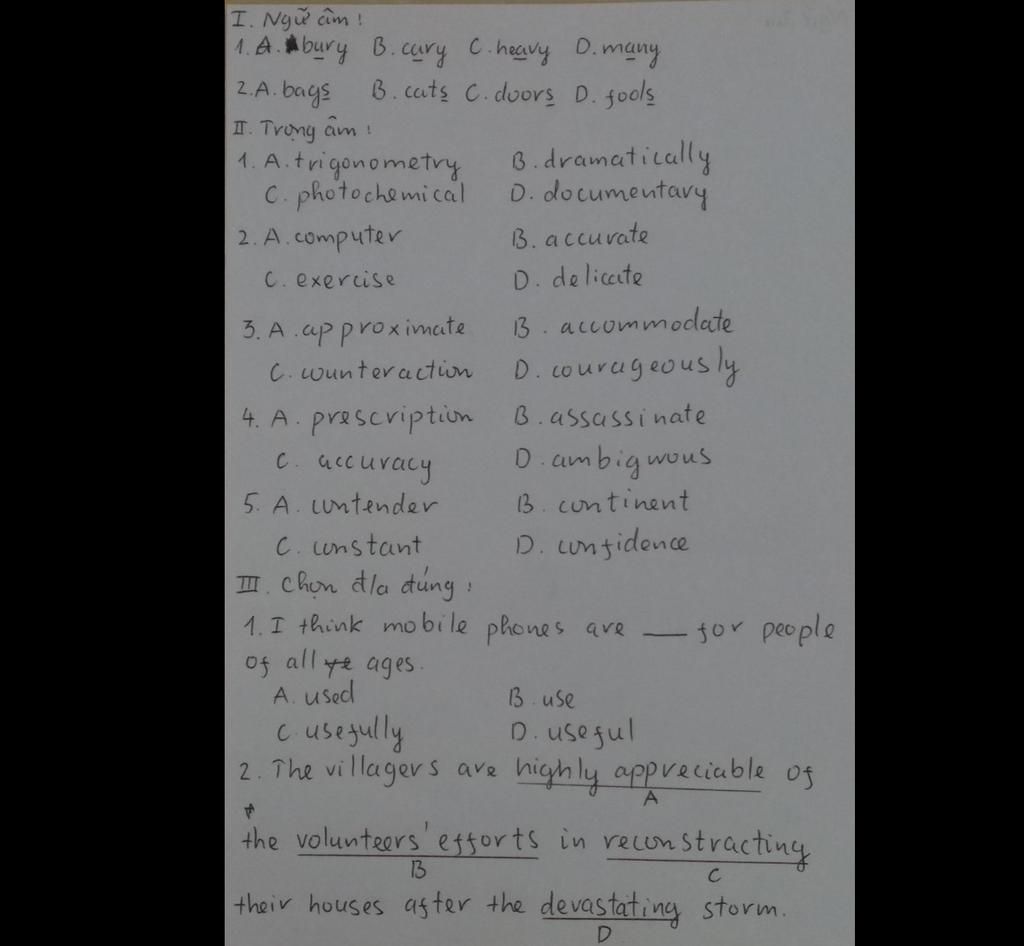 I. Ngữ âm :
1. A. bury B. cary C. heavy D. many
2. A. bags B. cats C. doors D. fools
II. Trọng âm :
1. A. trigonometry B. dramatically
C. photochemical D. documentary
2. A. computer B. accurate
C. exercise D. delicate
3. A. approximate B. accommodate
C. counteraction D. courageously
4. A. prescription B. assassinate
C. accuracy D. ambiguous
5. A. contender B. continent
C. constant D. confidence
III. Chọn đ/a đúng :
1. I think mobile phones are ___ for people
of all ages.
A. used B. use
C. usefully D. useful
2. The villagers are highly appreciable of
A
the volunteers' efforts in reconstracting
B C
their houses after the devastating storm.
D